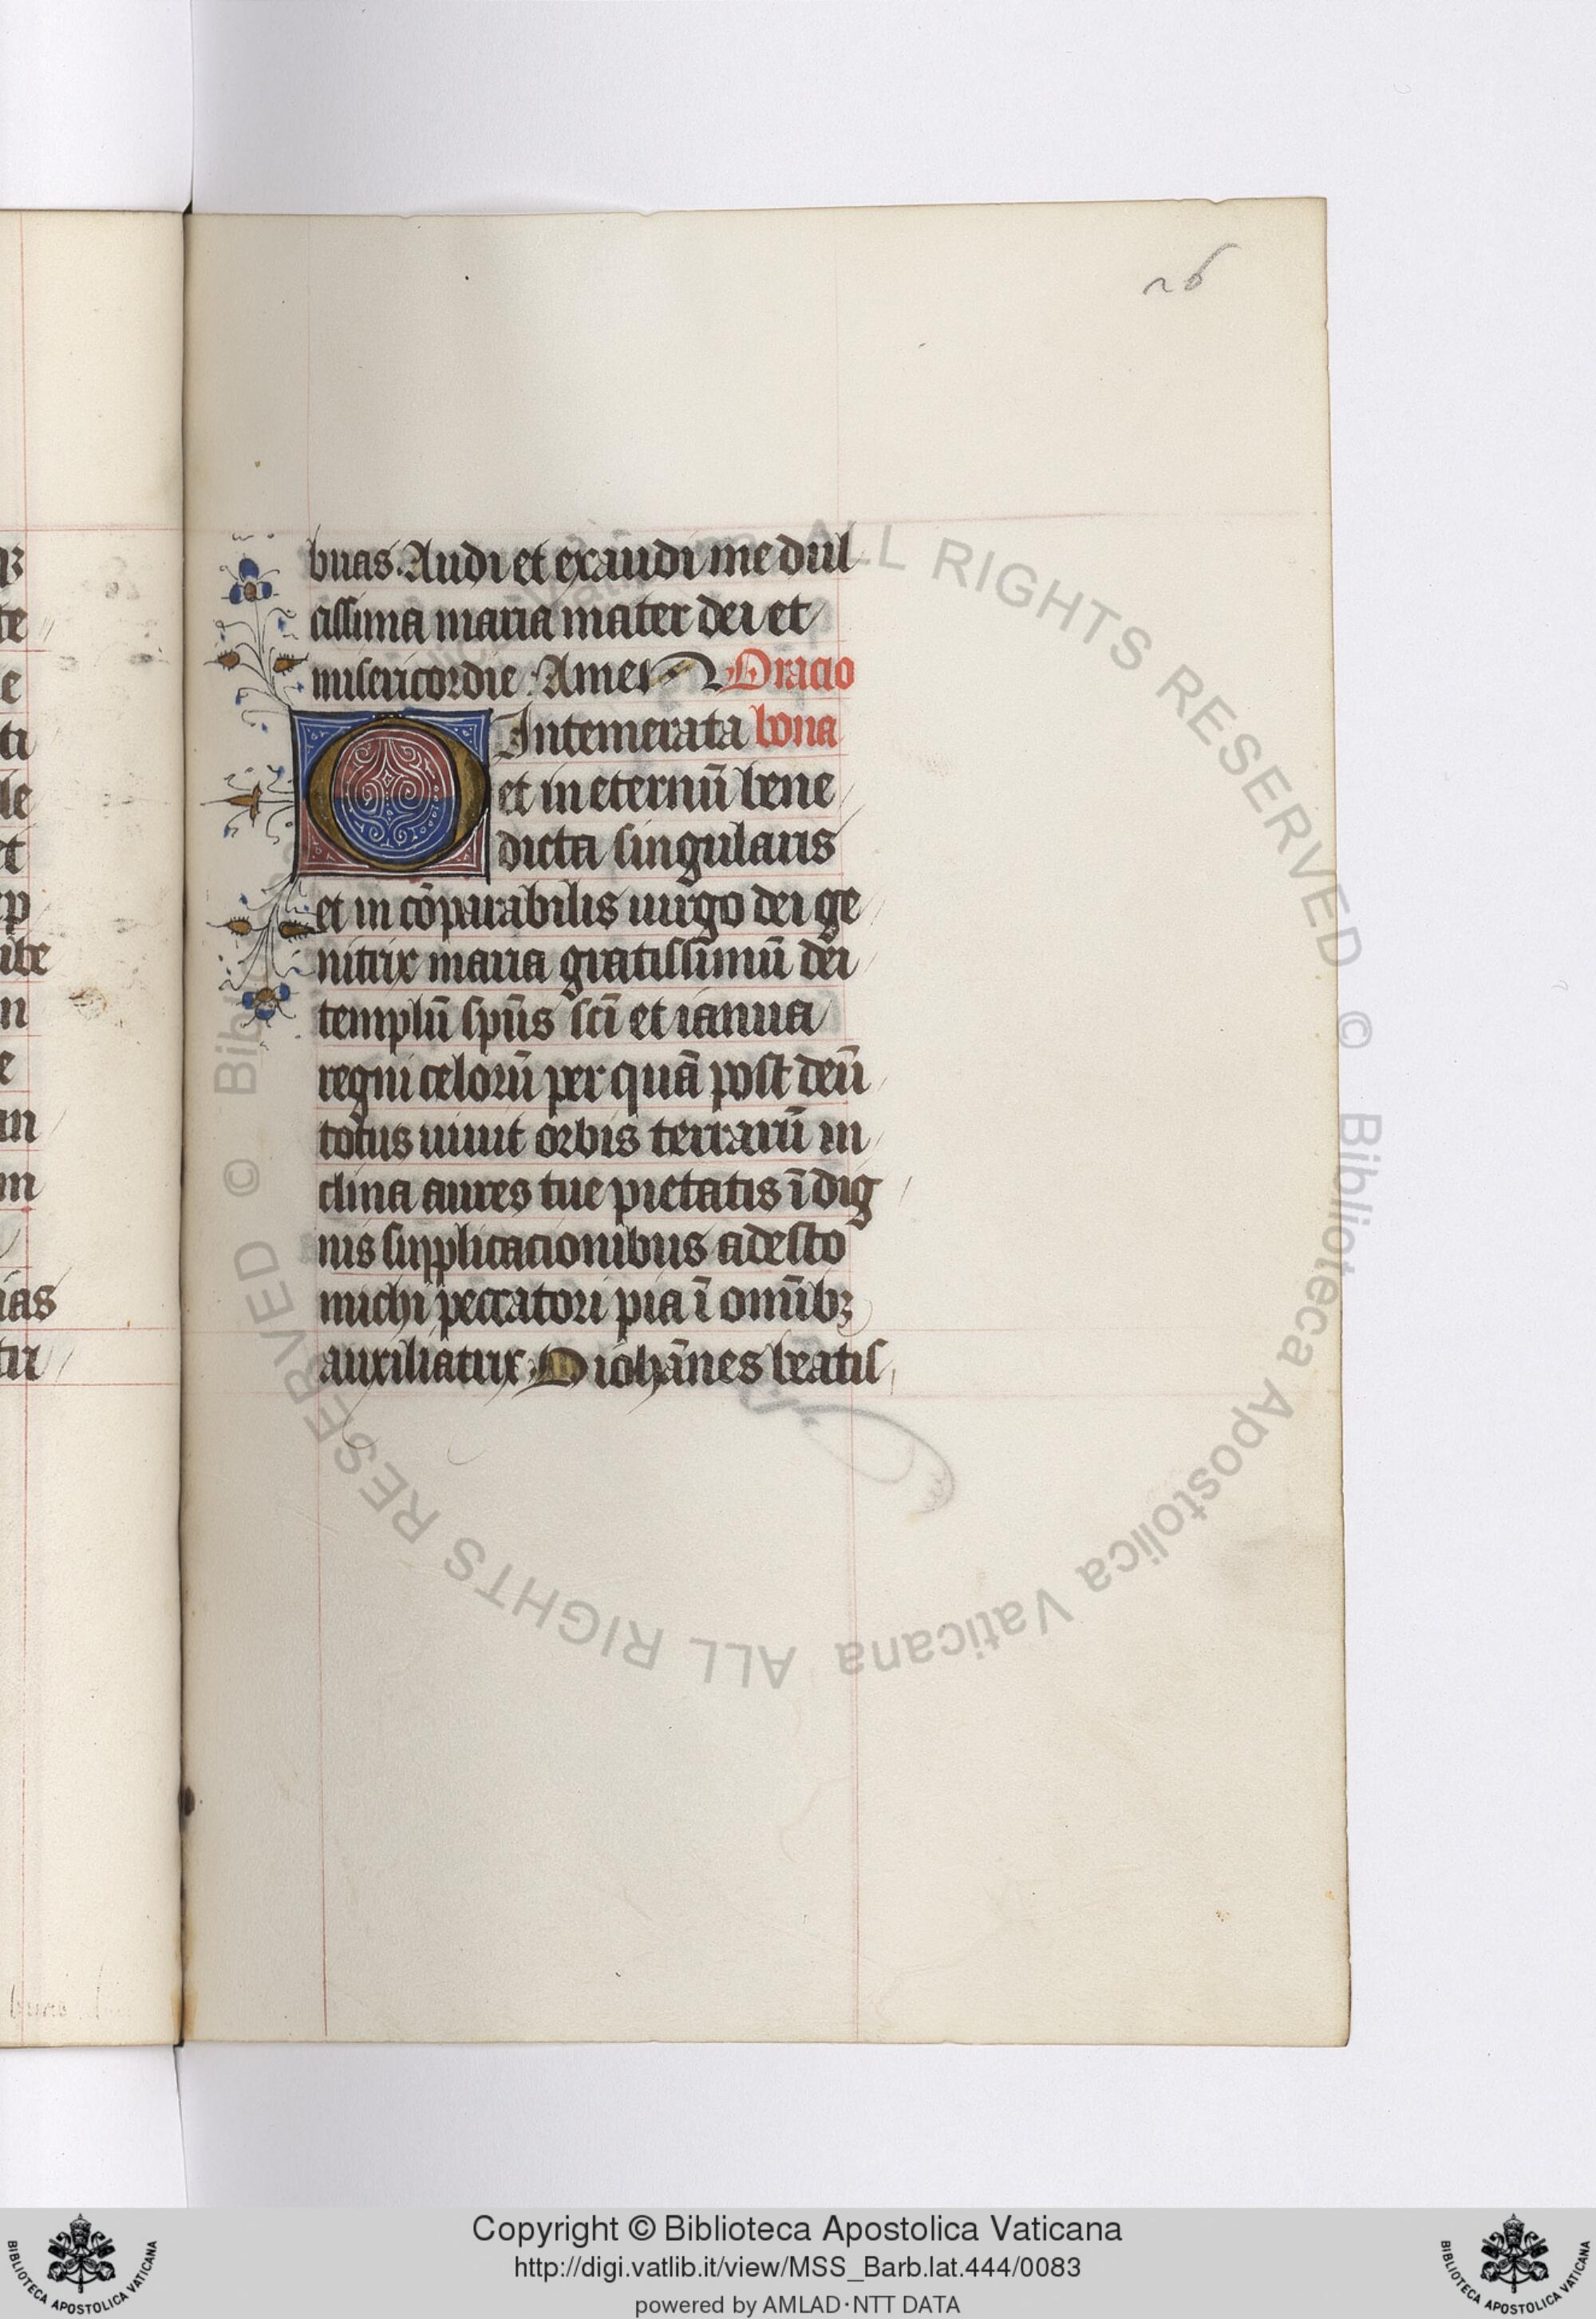 26
buas. Audi et exaudi me dul
cissima maria mater dei et
misericordie. Amen Oracio
O Intemerata bona
et in eternū bene
dicta singularis
et in cōparabilis uirgo dei ge
nitrix maria gratissimū dei
templū spūs scī et ianua
regni celorū per quā post deū
totus uiuit orbis terrarū in
clina aures tue pietatis ī dig
nis supplicacionibus adesto
michi peccatori pia ī omībꝫ
auxiliatrix O iohānes beatis
ALL RIGHTS RESERVED © Biblioteca Apostolica Vaticana
ALL RIGHTS RESERVED © Biblioteca Apostolica Vaticana
Copyright © Biblioteca Apostolica Vaticana
http://digi.vatlib.it/view/MSS_Barb.lat.444/0083
powered by AMLAD·NTT DATA
BIBLIOTECA APOSTOLICA VATICANA
BIBLIOTECA APOSTOLICA VATICANA